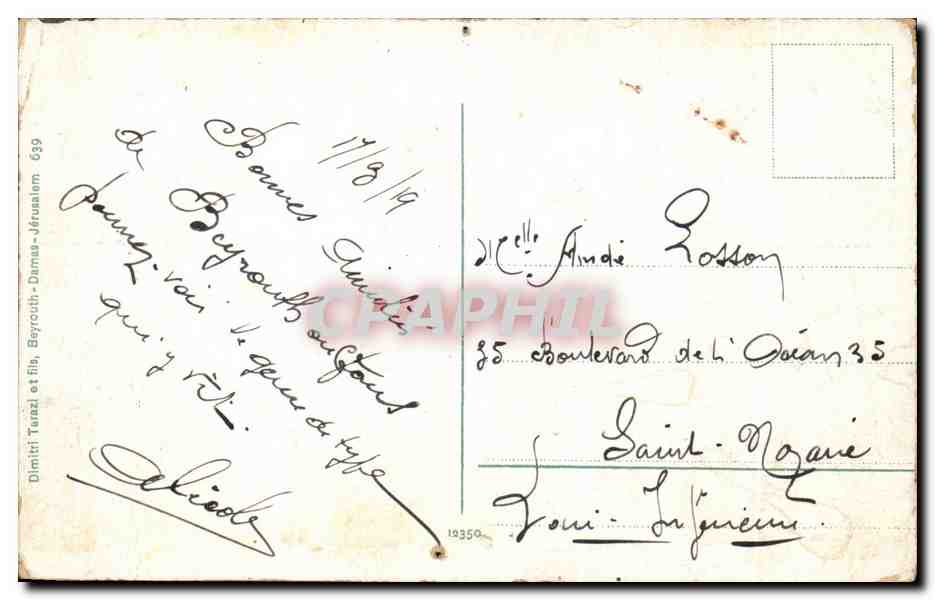 Dimitri Tarazi et fils, Beyrouth-Damas-Jérusalem 639
17/8/19
Bonnes Amitiés
de Beyrouth où tous
pouvez voir le genre de type
qui y vit.
CPAPHIL
Melle Aindé Losson
35 Boulevard de l'Océan 35
Saint-Nazaire
Loire-Inférieure
10350